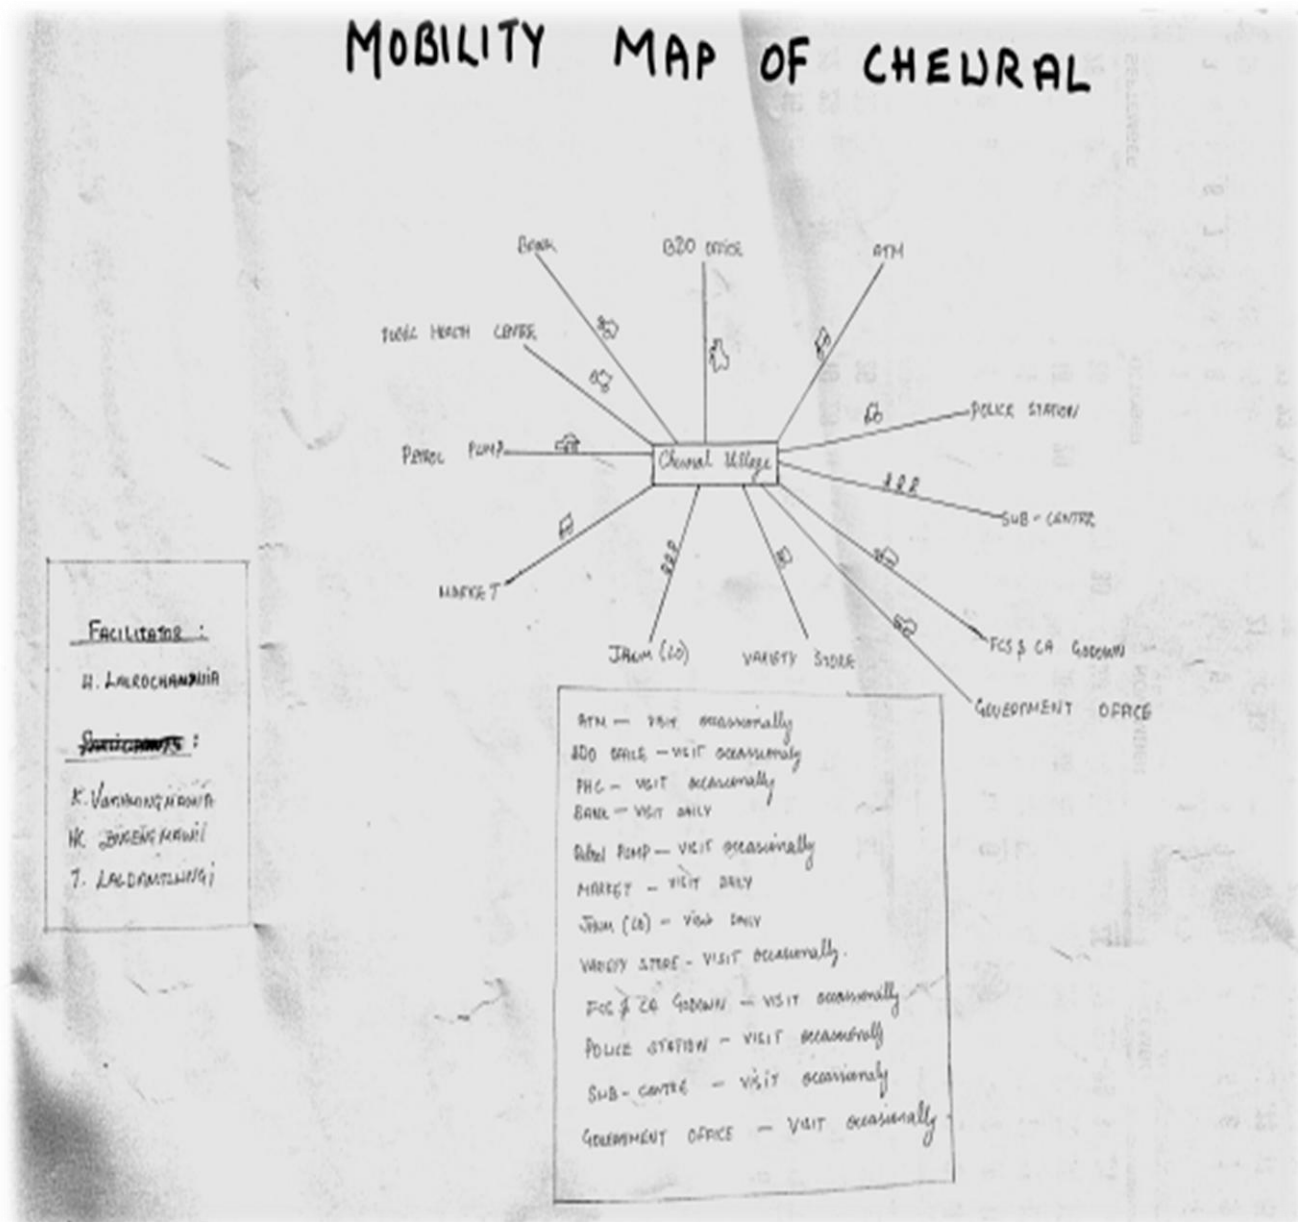 MOBILITY MAP OF CHEURAL
BANK
BDO OFFICE
ATM
PUBLIC HEALTH CENTRE
POLICE STATION
PETROL PUMP
Cheural Village
SUB-CENTRE
MARKET
JHUM (LO)
VARIETY STORE
FCS & CA GODOWN
GOVERNMENT OFFICE
FACILITATOR :
H.
:
K.
T.
ATM — VISIT occassionally
BDO OFFICE — VISIT occassionaly
PHC — VISIT occasionally
BANK — VISIT DAILY
Petrol PUMP — VISIT occasionally
MARKET — VISIT DAILY
JHUM (LO) — VISIT DAILY
VARIETY STORE - VISIT occasionally.
FCS & CA GODOWN — VISIT occassionally
POLICE STATION — VISIT occasionally
SUB-CENTRE — VISIT occassionaly
GOVERNMENT OFFICE — VISIT occasionally